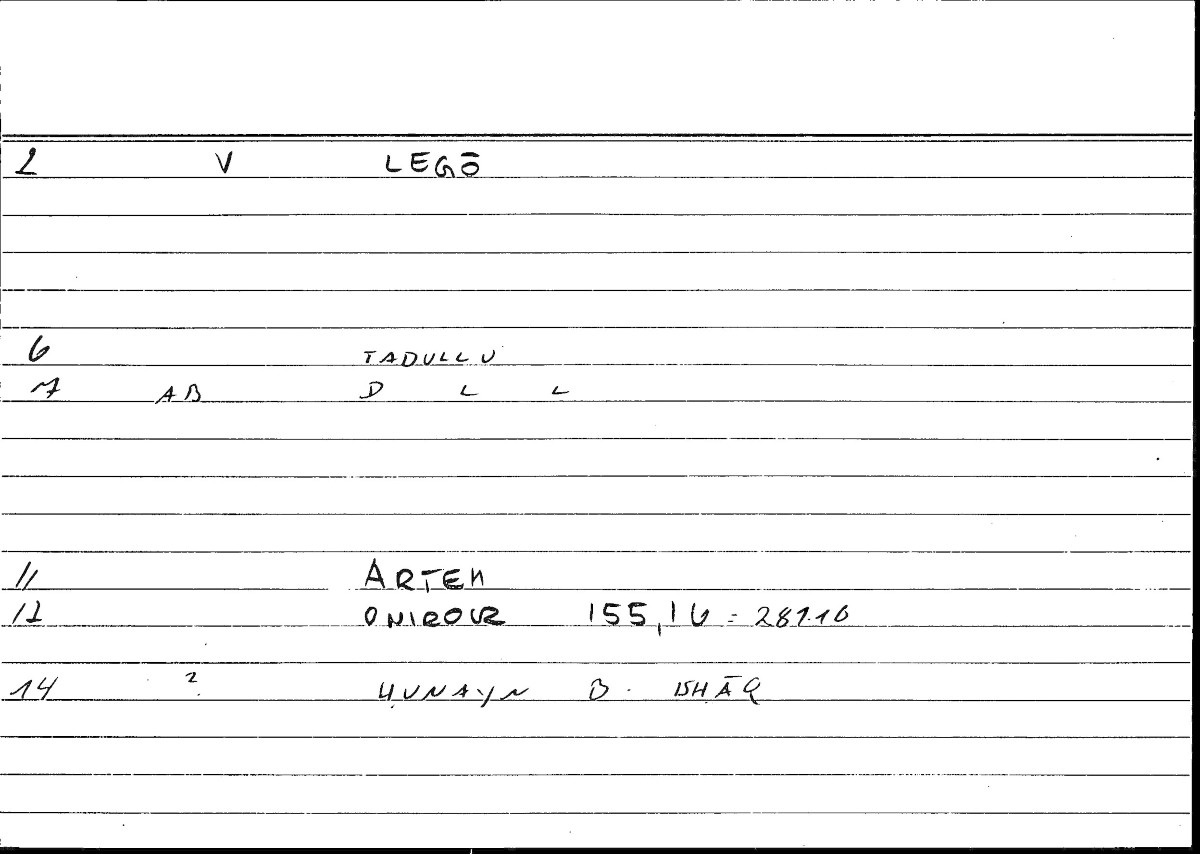 2 V LEGŌ
6 TADULLU
7 AB D L L
11 ARTEM
12 ONIROCR 155,16 = 281.10
14 2 ḤUNAYN B. ISḤĀQ